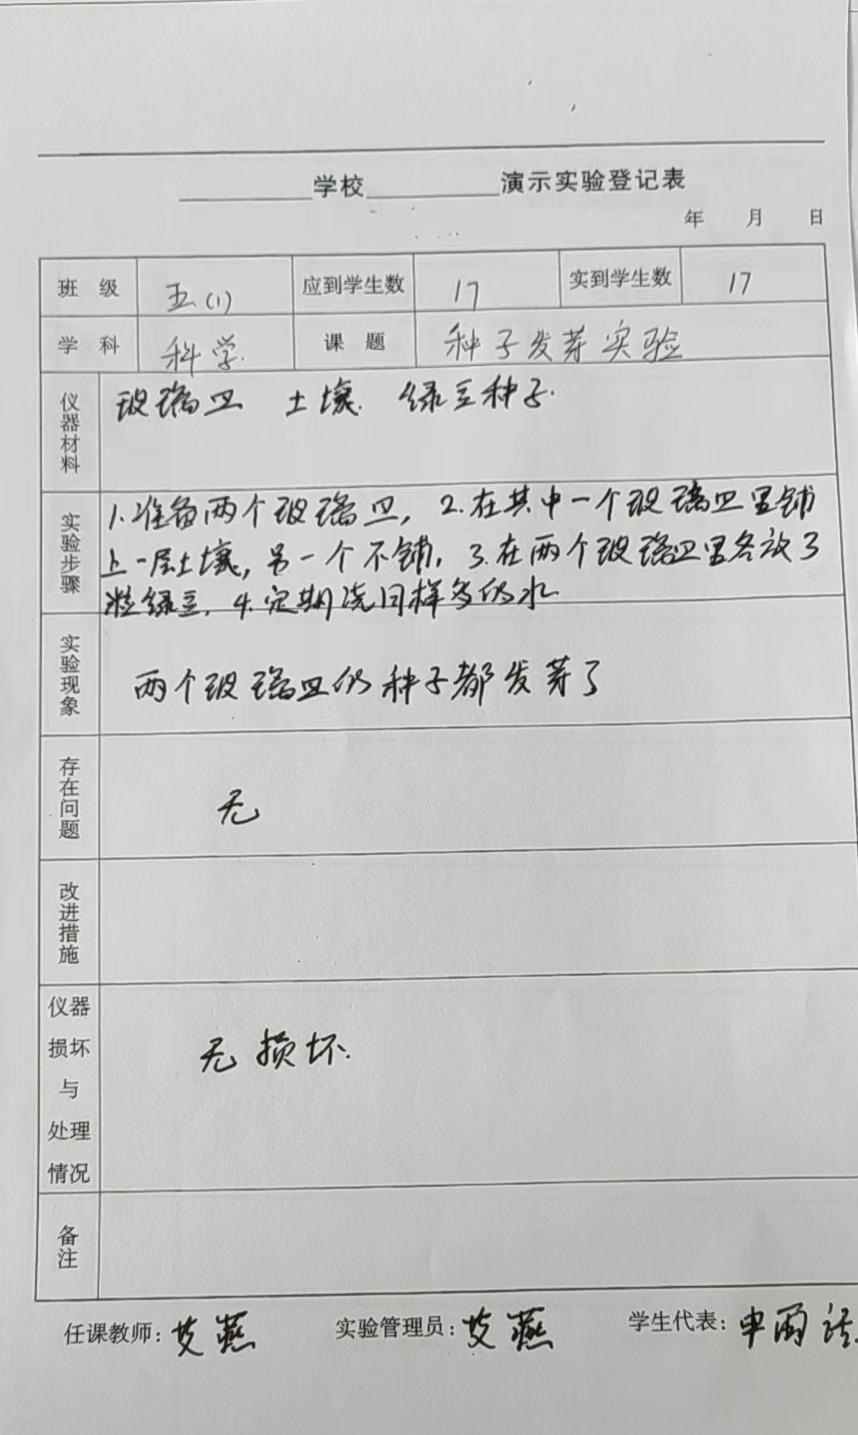 学校 演示实验登记表
年 月 日
班 级 五(1) 应到学生数 17 实到学生数 17
学 科 科学. 课 题 种子发芽实验
仪器材料 玻璃皿 土壤. 绿豆种子.
实验步骤 1.准备两个玻璃皿, 2.在其中一个玻璃皿里铺
上一层土壤, 另一个不铺, 3.在两个玻璃皿里各放3
粒绿豆, 4.定期浇同样多的水
实验现象 两个玻璃皿的种子都发芽了
存在问题 无
改进措施
仪器
损坏 无损坏.
与
处理
情况
备注
任课教师: 艾燕 实验管理员: 艾燕 学生代表: 申雨